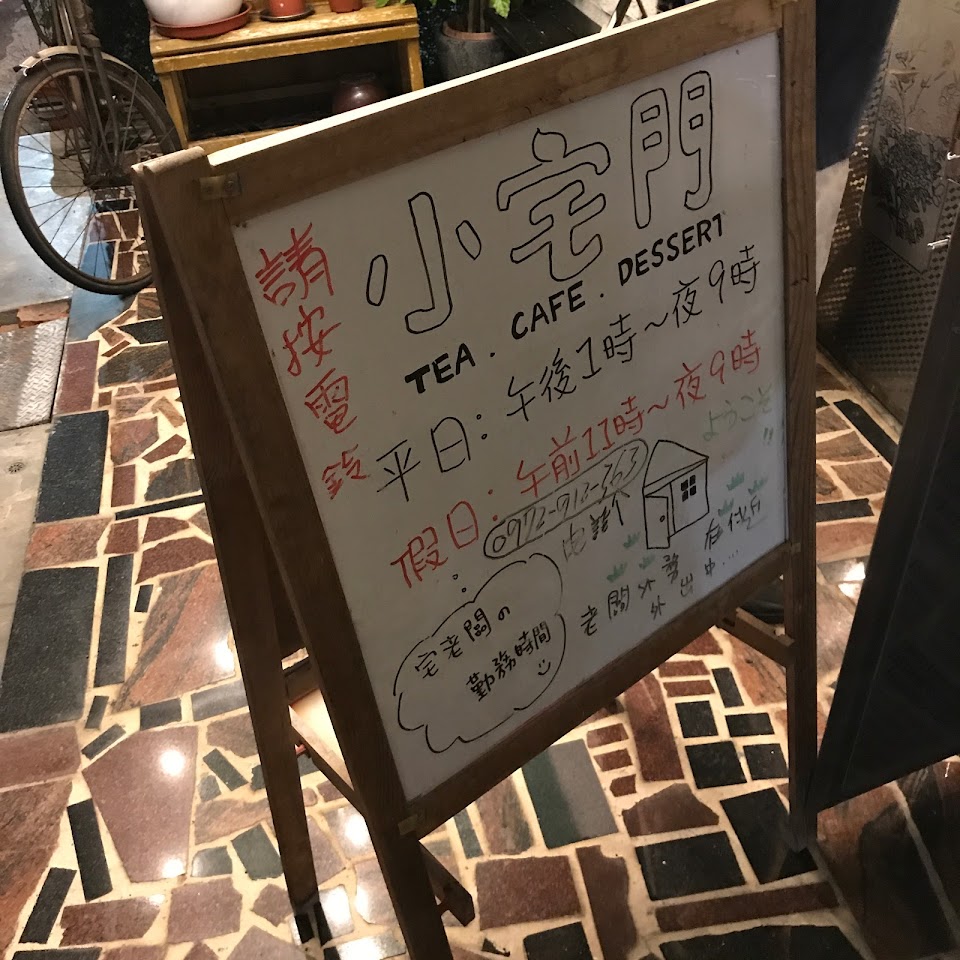 小宅門
TEA . CAFE . DESSERT
請按電鈴
平日：午後1時～夜9時
假日：午前11時～夜9時
ようこそ!!
0972-713-363
電話
宅老闆の
勤務時間
老闆外
外出中....